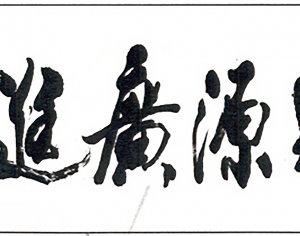 源廣進